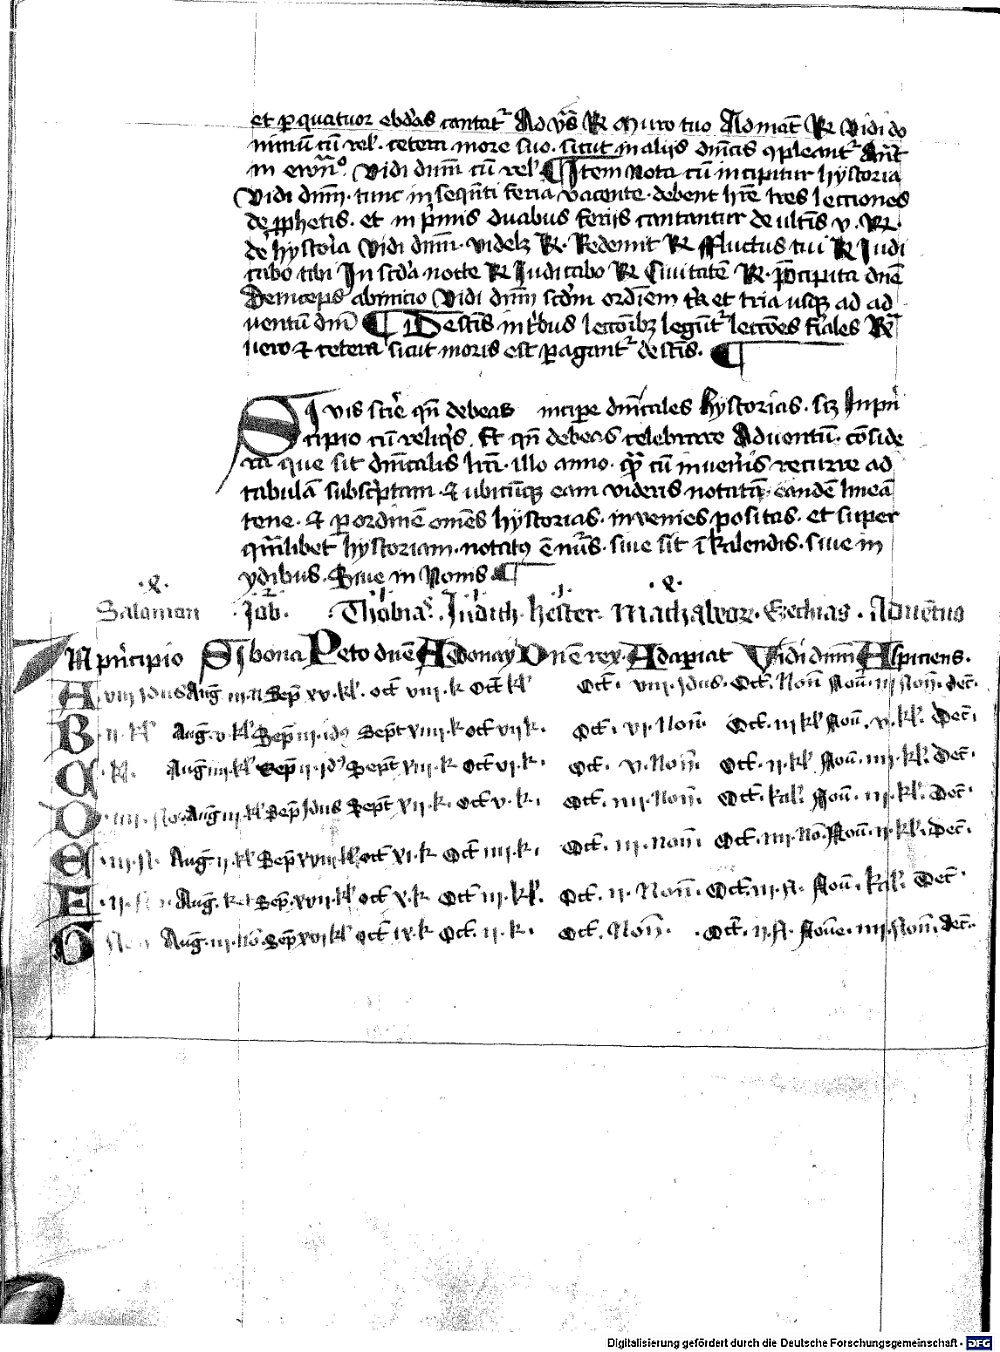 et p quatuor ebdas cantat Ad vs R Muro tuo Ad mat R Vidi do
minu cu rel. cetera more suo. sicut in alijs dnicis 9pleant Ant
in ewn. Vidi dnm cu rel ¶ Item nota cu incipitur hystoria
Vidi dnm. tunc in sequti feria vacante. debent hre tres lecciones
de pphetis. et in pmis duabus ferijs cantantur de ultis v. R.
de hystoria Vidi dnm. videlz R. Redemit R Fluctus tui R Iudi
cabo tibi In scda nocte R Iudicabo R Civitate R. Pcipita dne
Deinceps ab inicio Vidi dnm scdm ordiem et tria usq ad ad
ventu dni ¶ De festis in tbus leccoibz legut lecces fiales R
vero & cetera sicut moris est pagant de festis. ¶
Si vis scire qn debeas incipe dnicales hystorias. scz In pri
cipio cu reliqs. Et qn debeas celebrare Adventu. conside
ra que sit dnicalis lra. illo anno. qm cu inveneris recurre ad
tabula subscptam. & ubicuq eam videris notata. eande linea
tene. & p ordine omes hystorias. invenies positas. et super
qmlibet hystoriam. notatus e nus. sive sit i kalendis. sive in
ydibus. Sive in Nonis ¶
Salomon . Iob. Thobias. Iudith. hester. Machabeor. Ezechias. Adventus
In pncipio Si bona Peto dne Adonay Dne rex. Adapiat Vidi dnm Aspiciens.
A viij Idus Aug iij Sep xv. kl. oct viij. k Oct kl Oct. viij. Idus. Oct. Non Nou. iij Non. dec.
B ij. kl Aug. v. kl Sep iij. id9 Sept xiiij. k oct vij k. Oct. vi. Non. Oct. iij kl Nou. v. kl. Dec.
C . kl. Aug iiij. kl Sep ij. id9 Sept xiij. k Oct vi. k. Oct. v. Non Oct. ij. kl Nou. iiij. kl. Dec.
D . iiij. No. Aug iij. kl Sep Idus Sept xij. k Oct v. k. Oct. iiij. Non. Oct. kal. Nou. iij. kl. Dec.
E . iij. N. Aug ij. kl Sep xviij. kl oct xi. k Oct iiij. k. Oct. iij. non Oct. iiij. No. Nou. ij. kl. Dec.
F . ij. Aug. k. Sep. xvij. kl oct x. k Oct iij. kl. Oct. ij. Non. Oct. iij. N. Nou. kal. Dec.
G Non Aug. iij. no Sep xvi kl oct ix. k Oct. ij. k. Oct. Non. . Oct. ij. N. Noue. iiij. Non. dec.
Digitalisierung gefördert durch die Deutsche Forschungsgemeinschaft - DFG